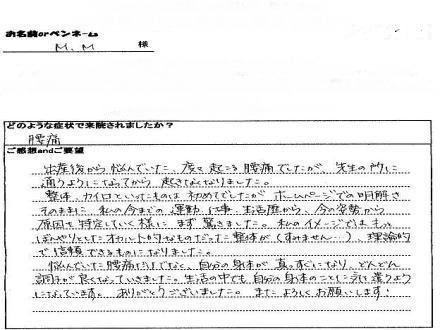 お名前orペンネーム
M.M 様
どのような症状で来院されましたか?
腰痛
ご感想andご要望
出産後から悩んでいた、度々起こる腰痛でしたが、先生の所に
通うようになってから起きなくなりました。
整体、カイロといったものは初めてでしたが、ホームページでの明解さ
そのままに、私の今までの運動、仕事、生活歴から、今の姿勢から
原因を特定していく様にまず驚きました。私のイメージではもっと
ぼんやりとしたオカルト的なものだった整体が(すみません…)、理論的
で信頼できるものになりました。
悩んでいた腰痛だけでなく、自分の身体が真っすぐになり、どんどん
調子が良くなっていきました。生活の中でも自分の身体のことに気を遣うよう
になっています。ありがとうございました。またよろしくお願いします!